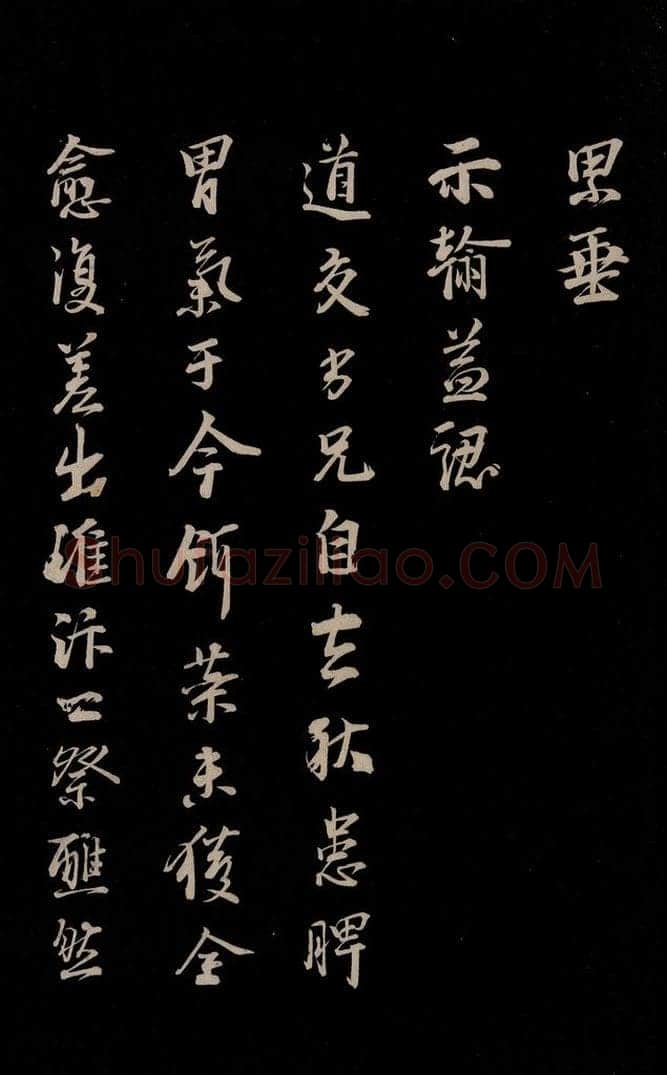 累垂
示翰益認
道交兄自去秋患脾
胃氣于今餌藥未獲全
愈復差出雍汴祭醮然
Shufaziliao.COM